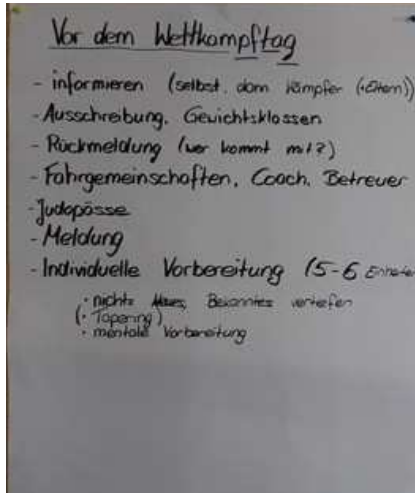 Vor dem Wettkampftag
- informieren (selbst, dann Kämpfer (+Eltern))
- Ausschreibung, Gewichtsklassen
- Rückmeldung (wer kommt mit?)
- Fahrgemeinschaften, Coach, Betreuer
- Judopässe
- Meldung
- Individuelle Vorbereitung (5-6 Einheiten
· nichts Neues, Bekanntes vertiefen
(· Tapering)
· mentale Vorbereitung